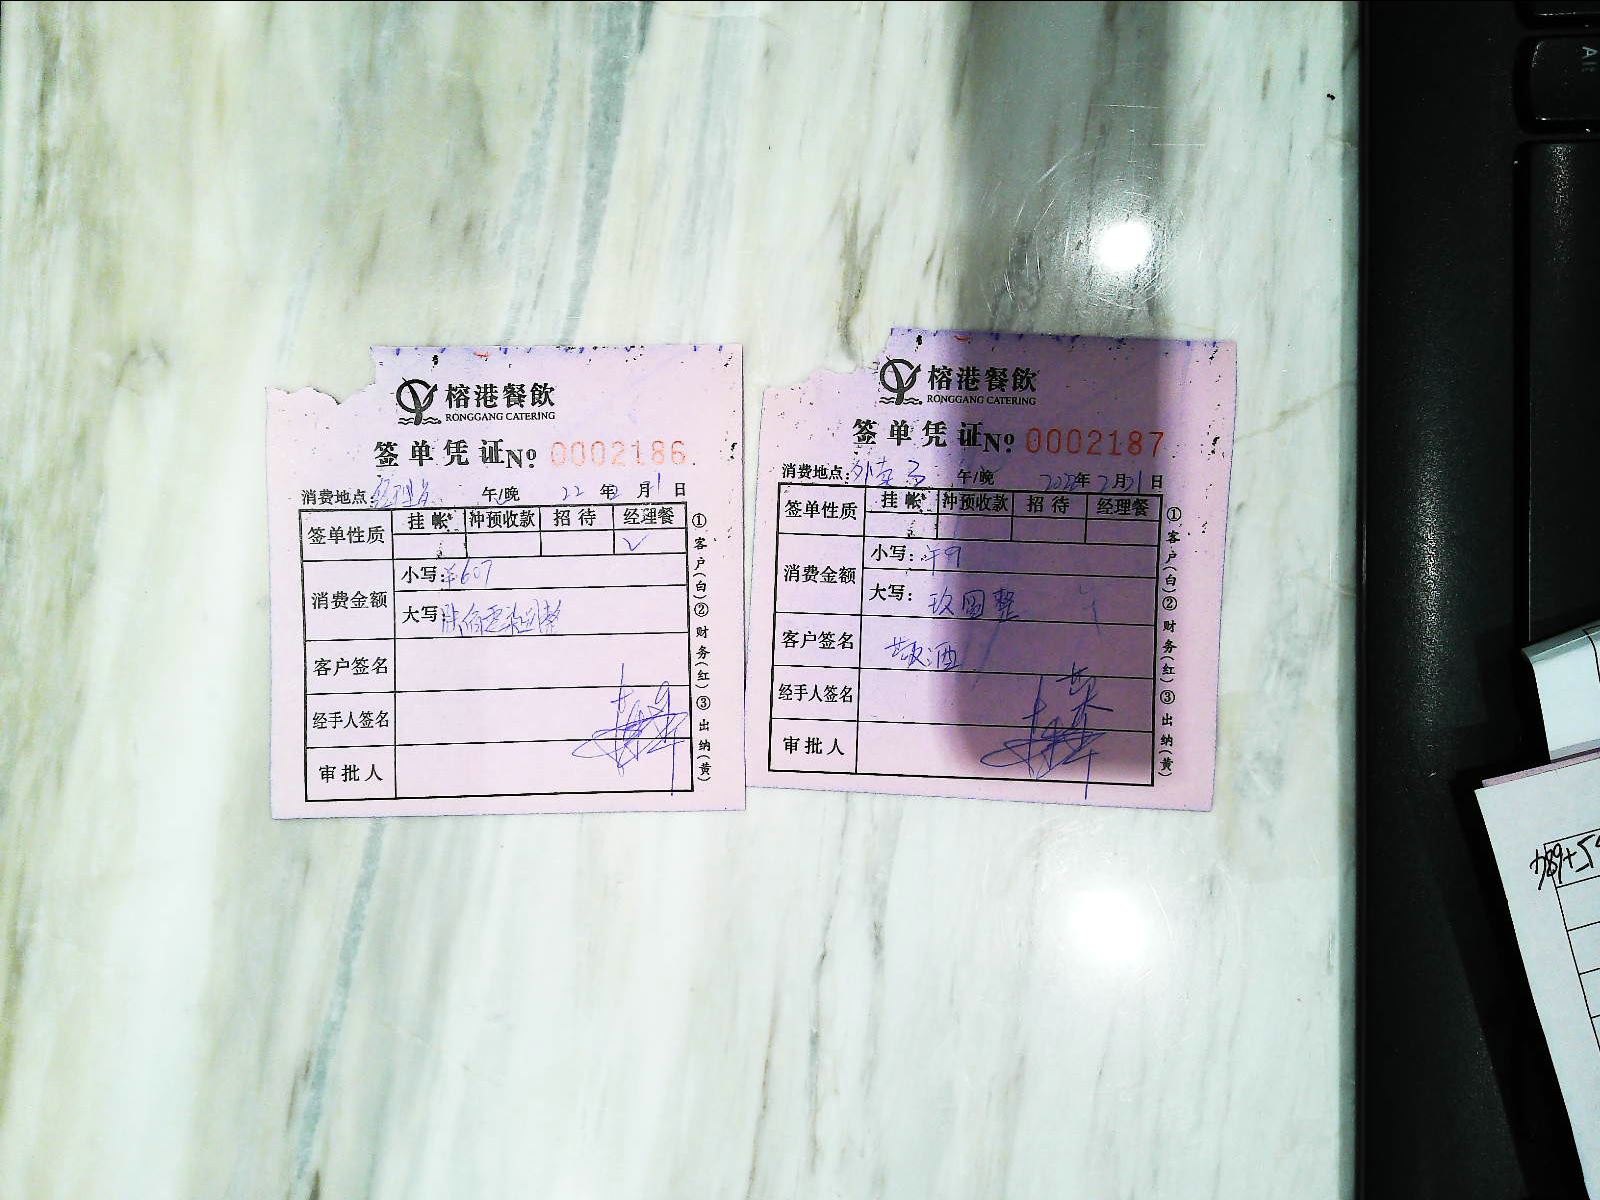 榕港餐飲
RONGGANG CATERING
签单凭证 No 0002186
消费地点: 午/晚 22年2月21日
签单性质 挂帐 冲预收款 招待 经理餐
✓
消费金额 小写:¥607
大写:陆佰零柒圆整
客户签名
经手人签名
审批人
①客户(白)②财务(红)③出纳(黄)
榕港餐飲
RONGGANG CATERING
签单凭证 No 0002187
消费地点: 午/晚 2022年2月21日
签单性质 挂帐 冲预收款 招待 经理餐
消费金额 小写:
大写:玖圆整
客户签名
经手人签名
审批人
①客户(白)②财务(红)③出纳(黄)